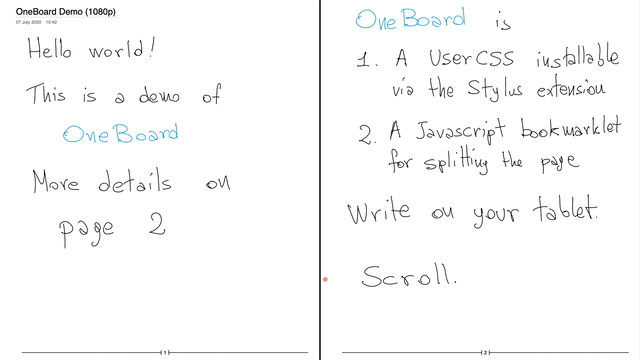 OneBoard Demo (1080p)
07 July 2020 10:42
Hello world!
This is a demo of
OneBoard
More details on
page 2
1
OneBoard is
1. A UserCSS installable
via the Stylus extension
2. A Javascript bookmarklet
for splitting the page
Write on your tablet.
Scroll.
2